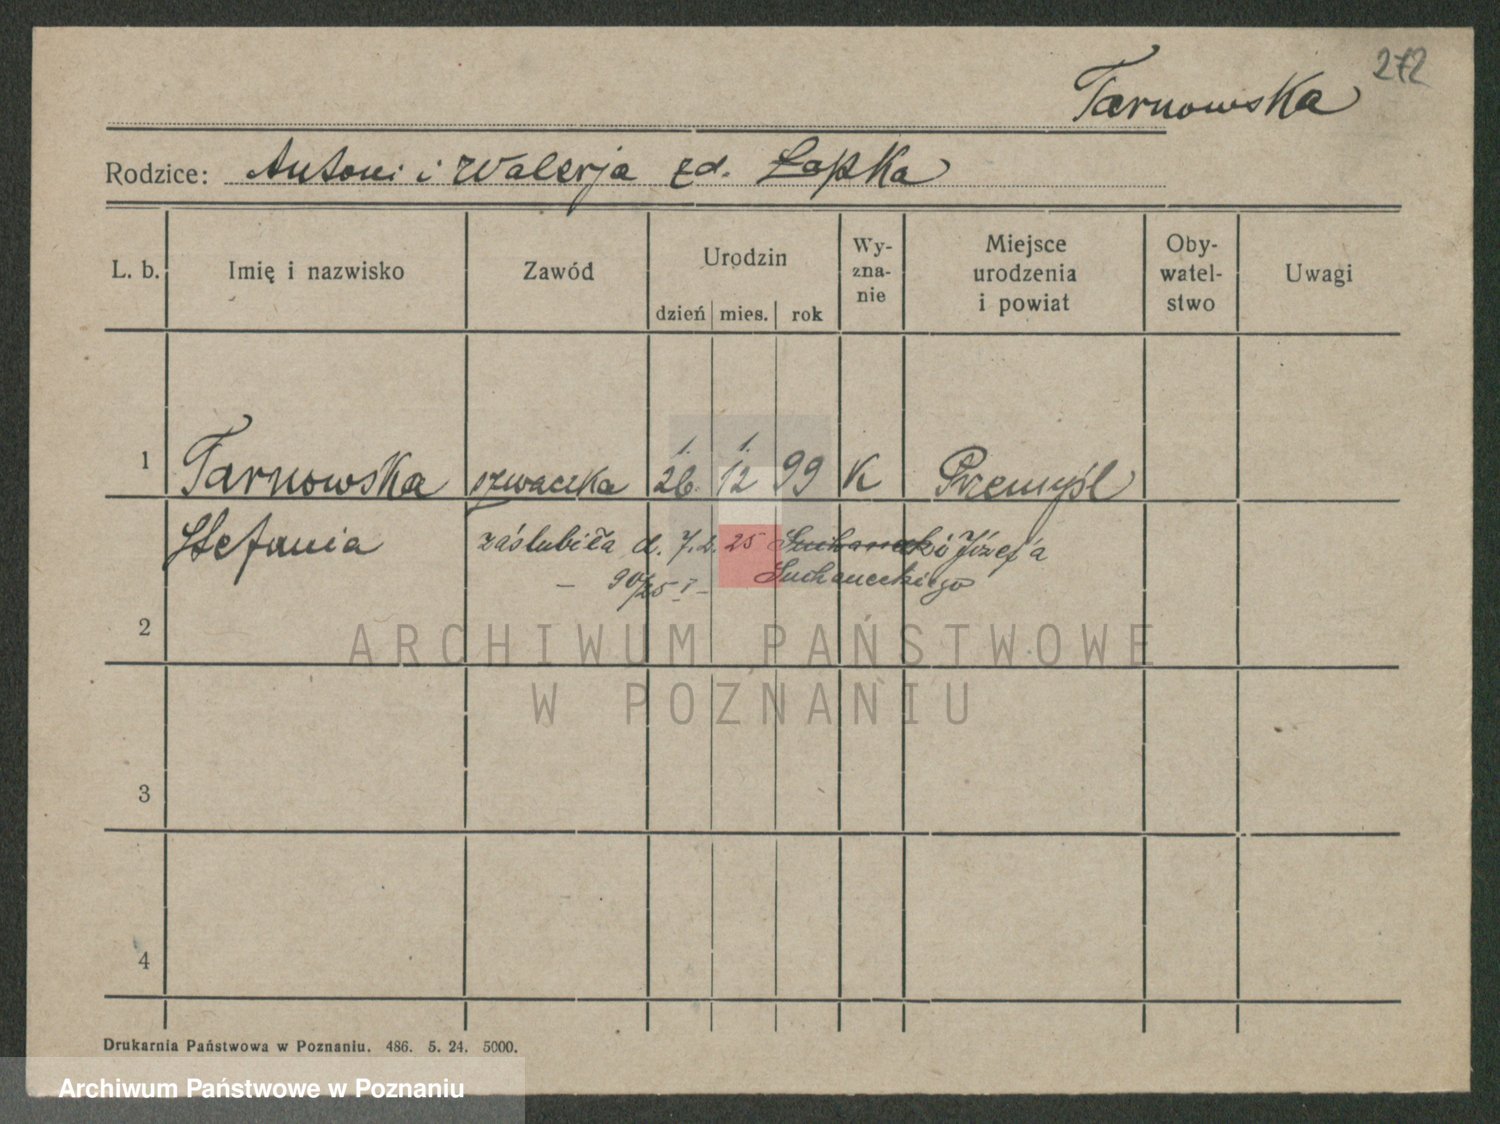 272
Tarnowska
Rodzice: Antoni i Walerja zd. Łapka
L. b.
Imię i nazwisko
Zawód
Urodzin
dzień
mies.
rok
Wy-
zna-
nie
Miejsce
urodzenia
i powiat
Oby-
watel-
stwo
Uwagi
1. 1.
1 Tarnowska szwaczka 26. 12 99 K Przemyśl
Stefania zaślubiła d. 7.2.25 Suchanecki Józef'a
– 90/25 I – Suchaneckiego
2
ARCHIWUM PAŃSTWOWE
W POZNANIU
3
4
Drukarnia Państwowa w Poznaniu. 486. 5. 24. 5000.
Archiwum Państwowe w Poznaniu